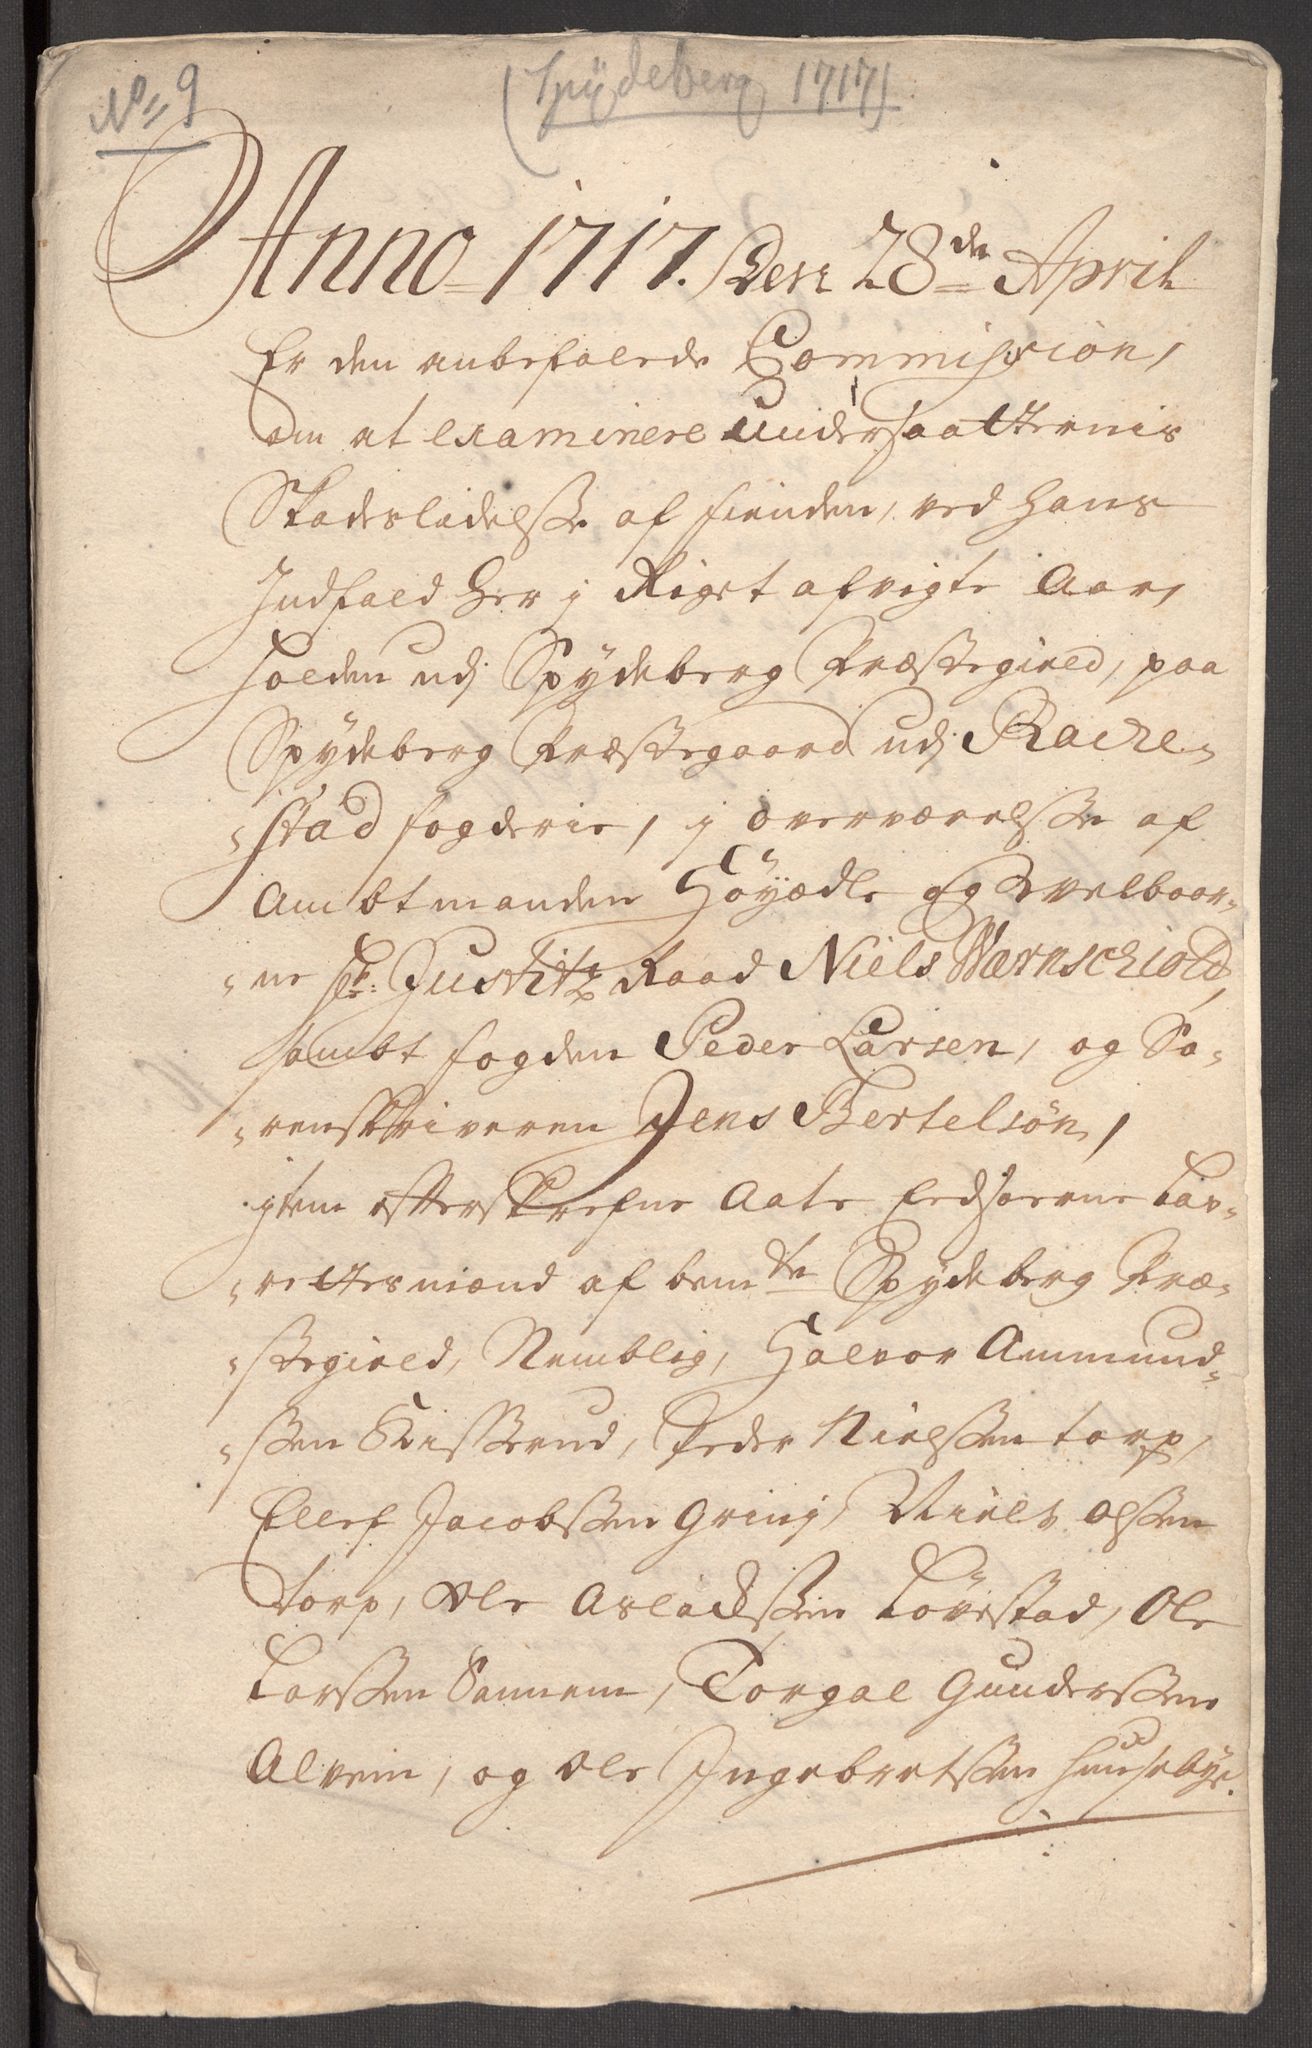 No 9
(Spydeberg 1717)
Anno 1717. Den 28de April
Er den anbefalede Commission,
om at examinere Undersaatternis
Skadeslidelsse af fienden, ved hans
Indfald her j Riget afvigte Aar,
holden udj Spydeberg Præstegield, paa
Spydeberg Præstegaard udj Racke-
-stad fogderie, j overværelsse af
Ambtmanden Höyædle og Velbaar-
-ne hr: Justitz Raad Niels Wærnschiold,
sambt fogden Peder Larsen, og So-
-renskriveren Jens Bertelsön,
jtem effterskrefne Aate Eedsorne Lav-
-rettesmænd af bemte Spydeberg Præ-
-stegield, Nemblig, Halvor Ammund-
-ssen Kisserud, Peder Nielssen torp,
Ellef Jacobssen Grinj, Niels Olssen
torp, Ole Aslachssen Lövestad, Ole
Larssen Sannem, Torgal Gunderssen
Alvem, og Ole Ingebretssen Huusebye.